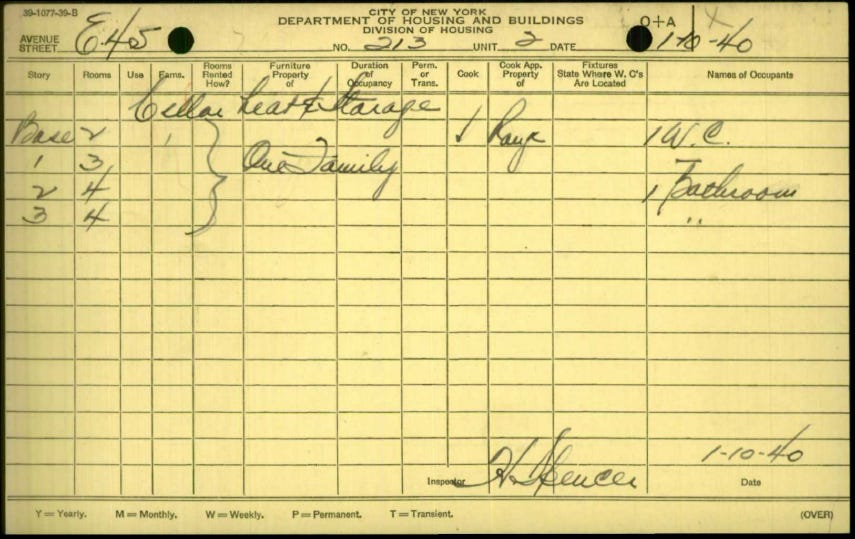 39-1077-39-B
CITY OF NEW YORK
DEPARTMENT OF HOUSING AND BUILDINGS
DIVISION OF HOUSING
O+A
AVENUE STREET E.45 NO. 213 UNIT 2 DATE 1-10-40
Story Rooms Use Fams. Rooms Rented How? Furniture Property of Duration of Occupancy Perm. or Trans. Cook Cook App. Property of Fixtures State Where W. C's Are Located Names of Occupants
Cellar heat & Storage
Base 2 1 Range 1 W.C.
1 3 One Family
2 4 1 Bathroom
3 4 "
Inspector H. Spencer 1-10-40 Date
Y = Yearly. M = Monthly. W = Weekly. P = Permanent. T = Transient. (OVER)